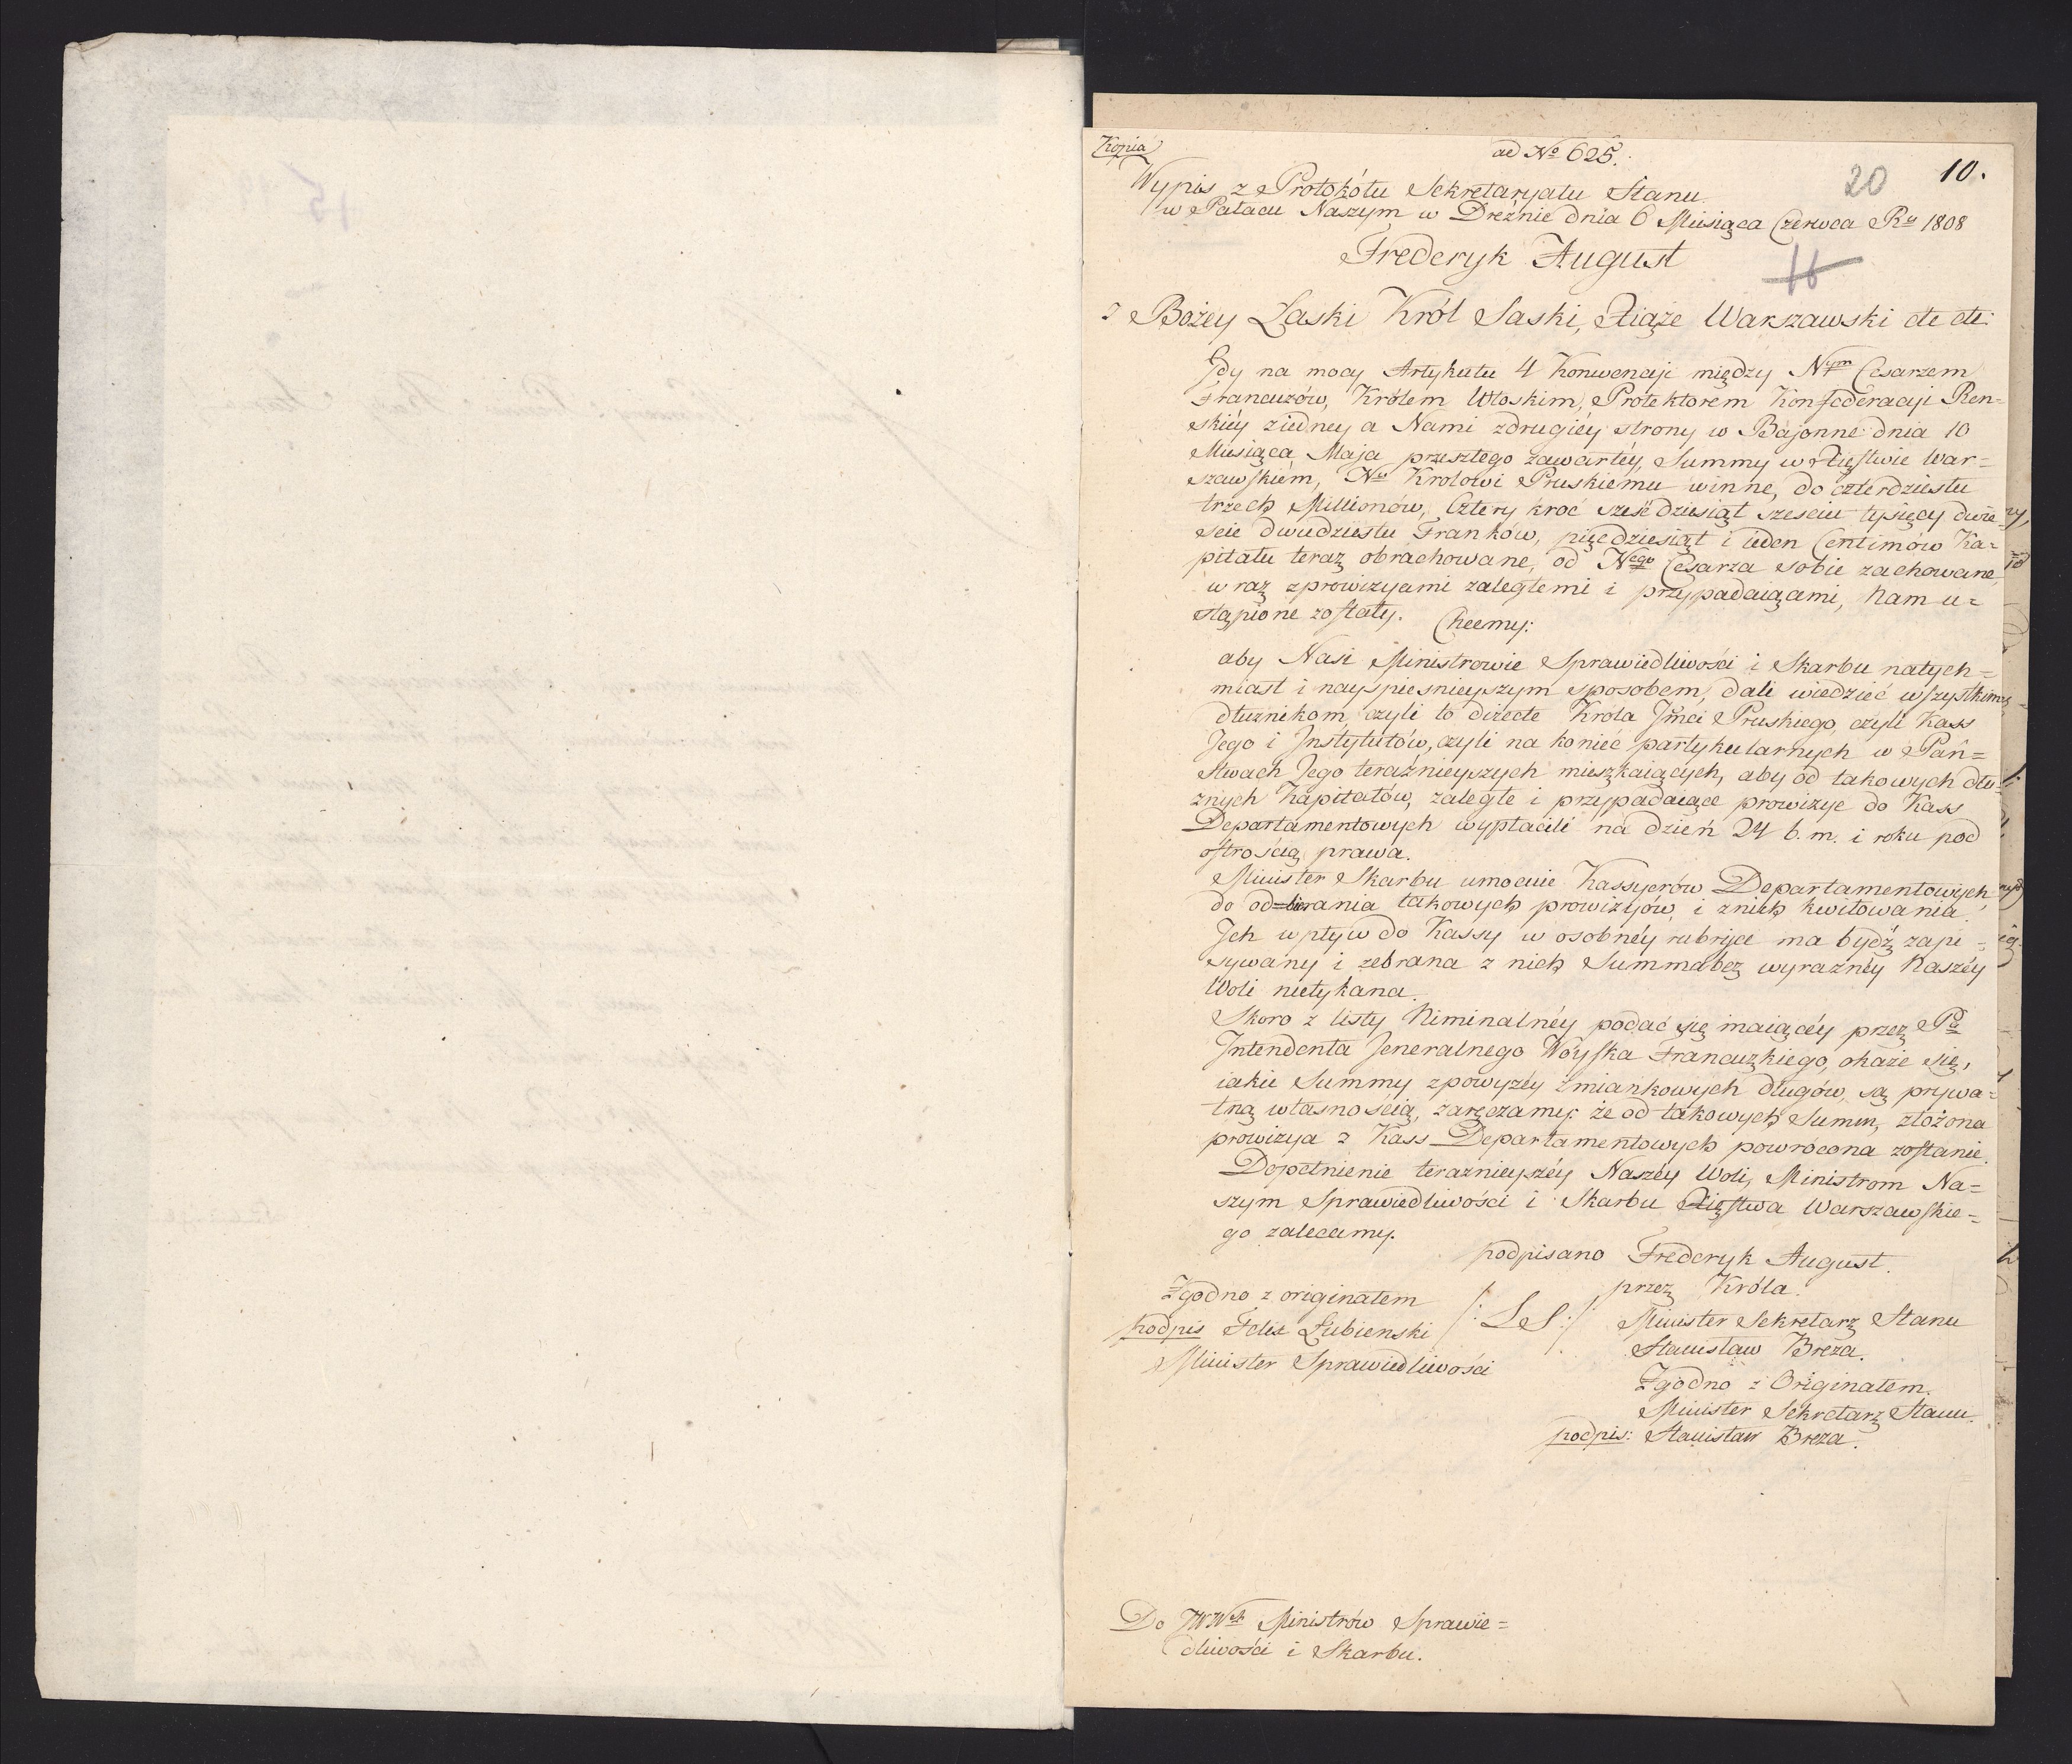 Kopia
ad No 625.
20 10.
Wypis z Protokółu Sekretaryatu Stanu
w Pałacu Naszym w Dreźnie dnia 6 Miesiąca Czerwca Ru 1808
Fryderyk August
16
z Bożey Łaski Król Saski, Xiąże Warszawski etc etc:
Gdy na mocy Artykułu 4 Konwencji między Nym Cesarzem
Francuzów, Królem Włoskim, Protektorem Konfederacji Ren=
skiéy ziedney a Nami zdrugiéy strony w Bajonne dnia 10
Miesiąca Maja przeszłego zawartéy, Summy w Xięstwie War=
szawskiém, Nu Krolowi Pruskiemu winne, do czterdziestu
trzech Millionów, Cztery kroć sześćdziesiąt sześciu tysięcy dwie
ście dwudziestu Franków, pięćdziesiąt i ieden Centimów Ka=
pitału teraz obrachowane, od Nego Cesarza sobie zachowane
wraz zprowizyami zaległemi i przypadaiącami, Nam u=
stąpione zostały. Chcemy:
aby Nasi Ministrowie Sprawiedliwości i Skarbu natych=
miast i nayspiesnieyszym sposobem, dali wiedzieć wszystkim
dłużnikom, czyli to directe Króla Jmci Pruskiego, czyli Kass
Jego i Jnstytutów, czyli na koniec partykularnych w Pań=
stwach Jego teraźnieyszych mieszkaiących, aby od takowych dłu=
żnych Kapitałów, zaległe i przypadaiące prowizye do Kass
Departamentowych wypłacili na dzień 24 b. m. i roku pod
ostrością prawa.
Minister Skarbu umocuie Kassyerów Departamentowych
do od=bierania takowych prowizyów, i znich kwitowania.
Jch wpływ do Kassy w osobnéy rubryce ma bydź zapi=
sywany i zebrana z nich Summa bez wyraznéy Naszéy
Woli nietykana.
Skoro z listy Niminalnéy podać się maiącéy przez Pa
Jntendenta Jeneralnego Woyska Francuzkiego, okaże się,
iakie Summy zpowyzéy zmiankowych długów, są prywa=
tną własnością, zaręczamy: że od takowych Summ, złożona
prowizya z Kass Departamentowych powrócona zostanie.
Dopełnienie teraznieyszéy Naszéy Woli, Ministrom Na=
szym Sprawiedliwości i Skarbu Xięstwa Warszawskie=
go zalecamy.
podpisano Frederyk August.
przez Króla.
Zgodno z originałem
podpis Felix Łubienski
Minister Sprawiedliwości
/: LS :/
Minister Sekretarz Stanu
Stanisław Breza.
Zgodno z Originałem.
Minister Sekretarz Stanu.
podpis: Stanisław Breza.
Do JWWch Ministrów Sprawie=
dliwości i Skarbu.